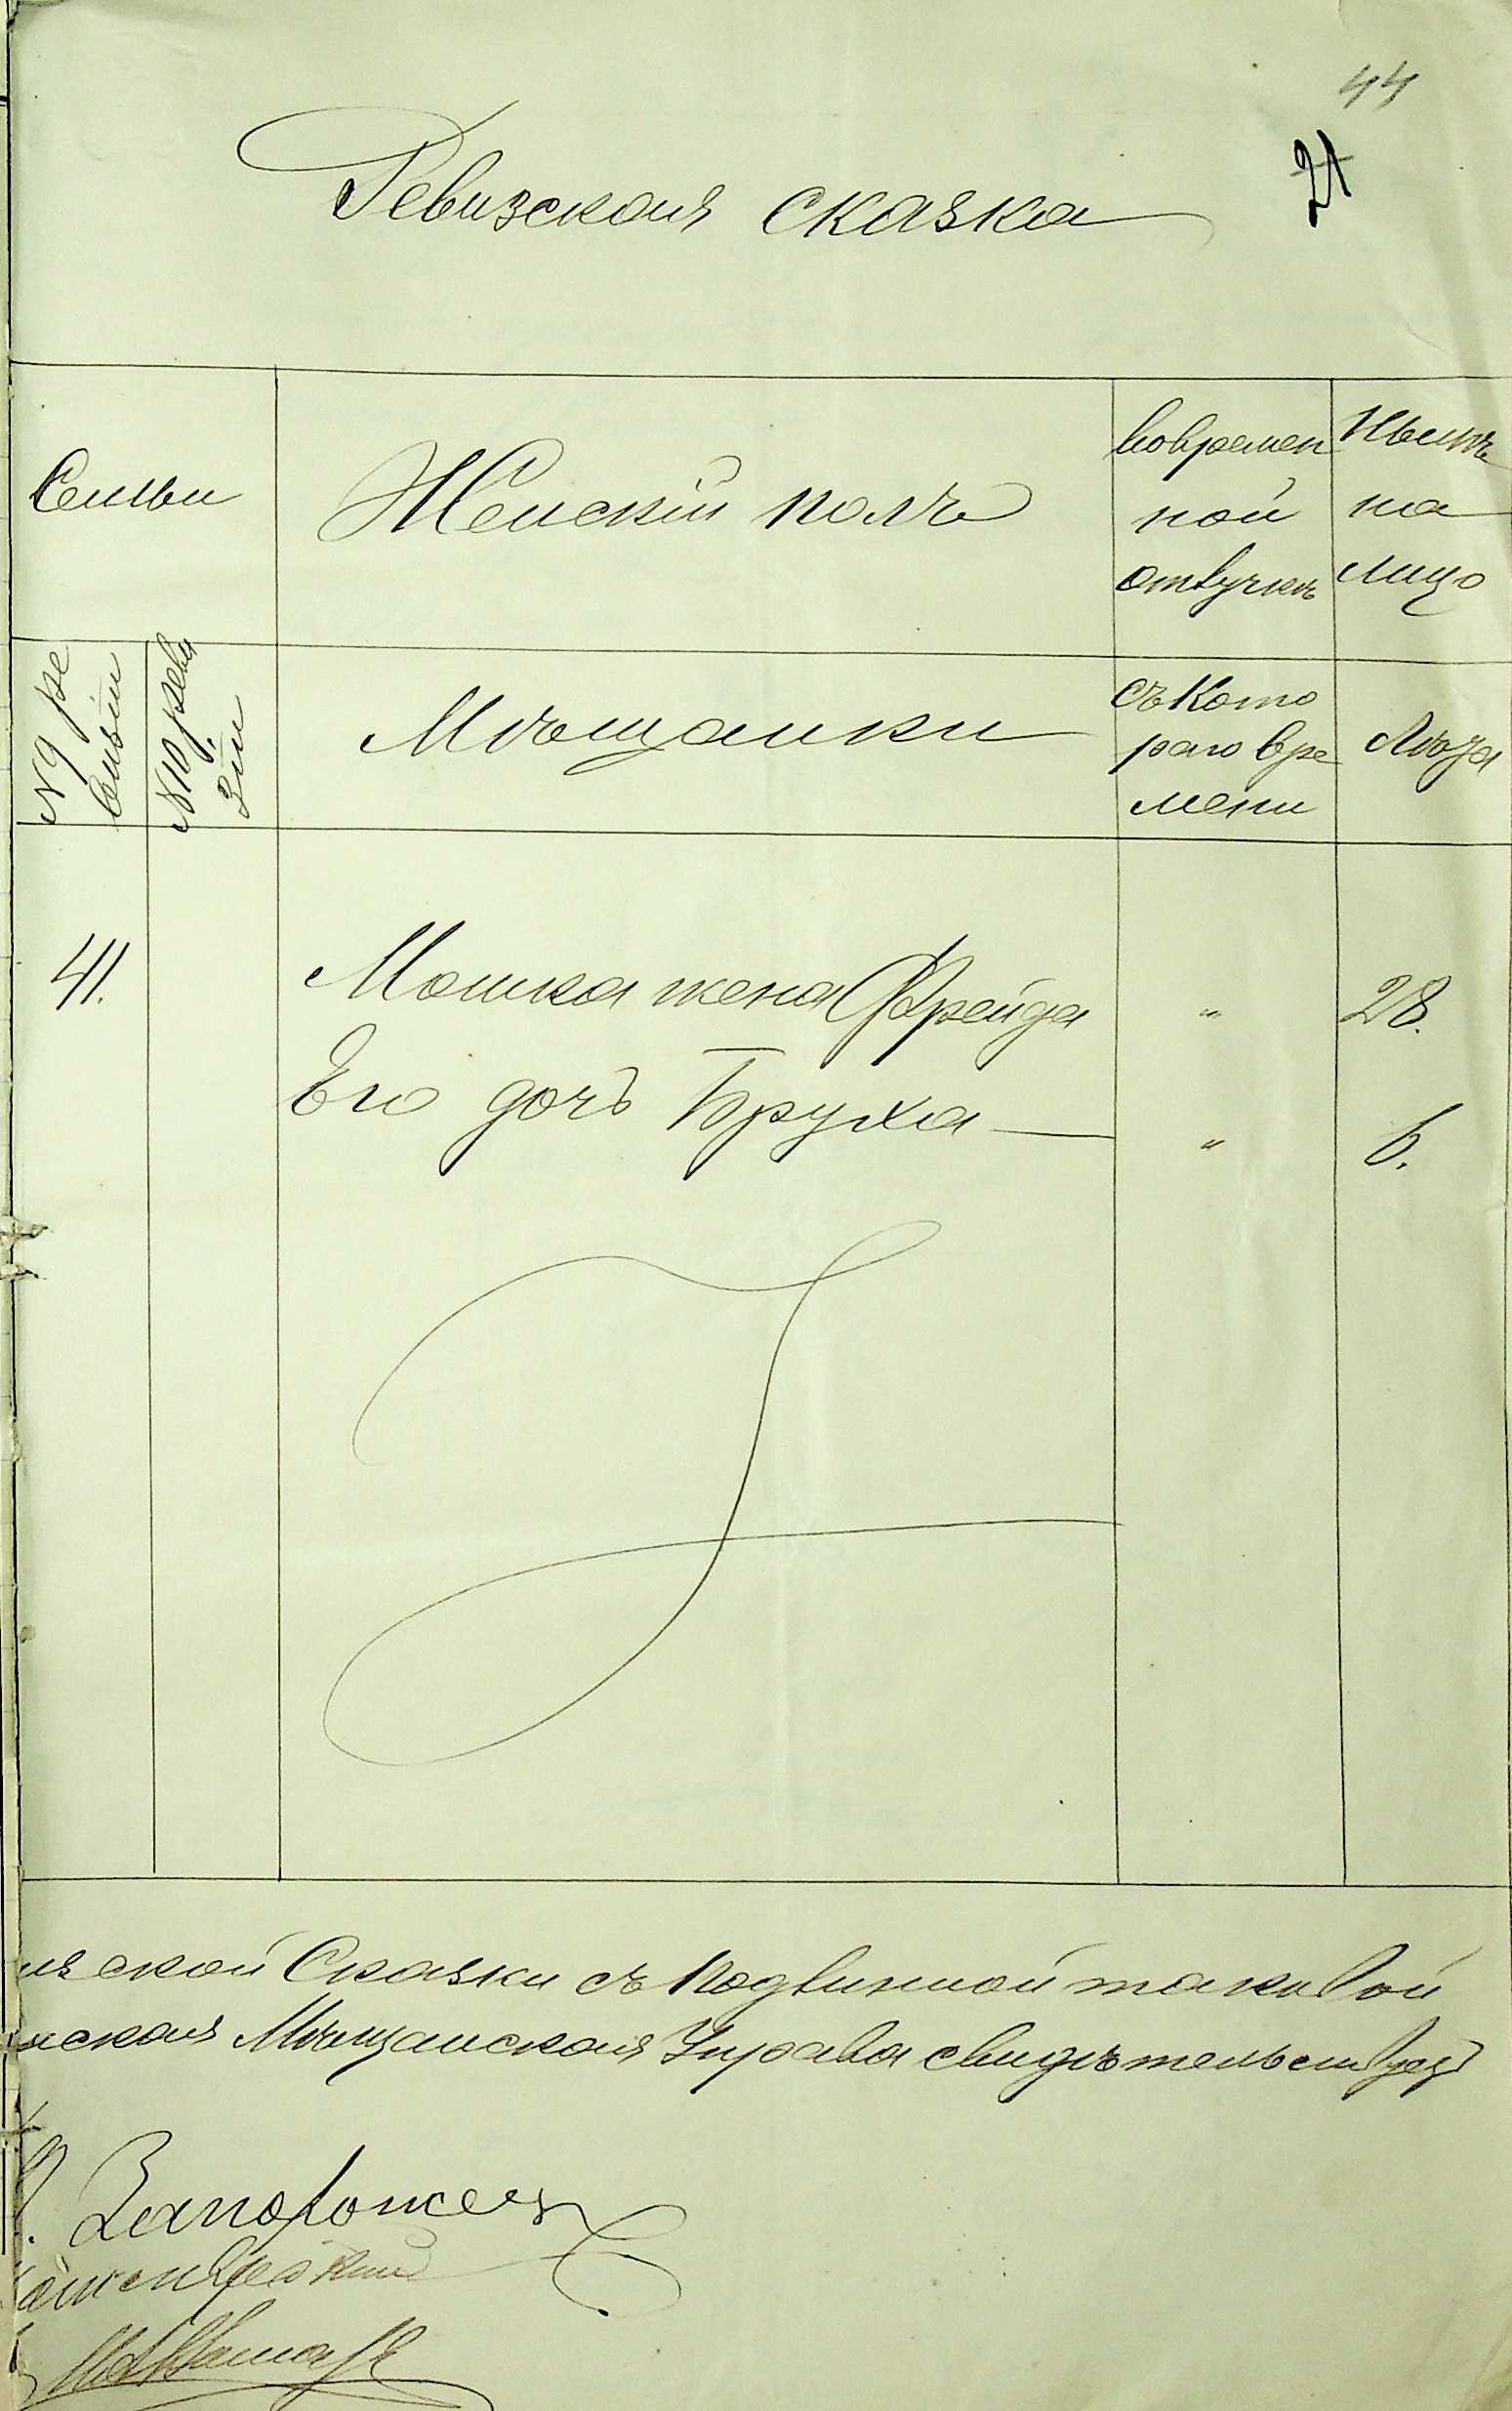 44
21
Ревизская сказка
Семьи
Женскій полъ
во времен
ной
отлучкѣ
Нынѣ
на
лицо
№ 9 ре
визіи
№ 10 реви
зіи
Мѣщанки
съ кото
раго вре
мени
Лѣта
41.
Мошка жена Фрейда " 28.
Его дочь Бруха " 6.
ской Сказки съ подлинной таковой
нская Мѣщанская Управа свидѣтельствуетъ
Запорожецъ